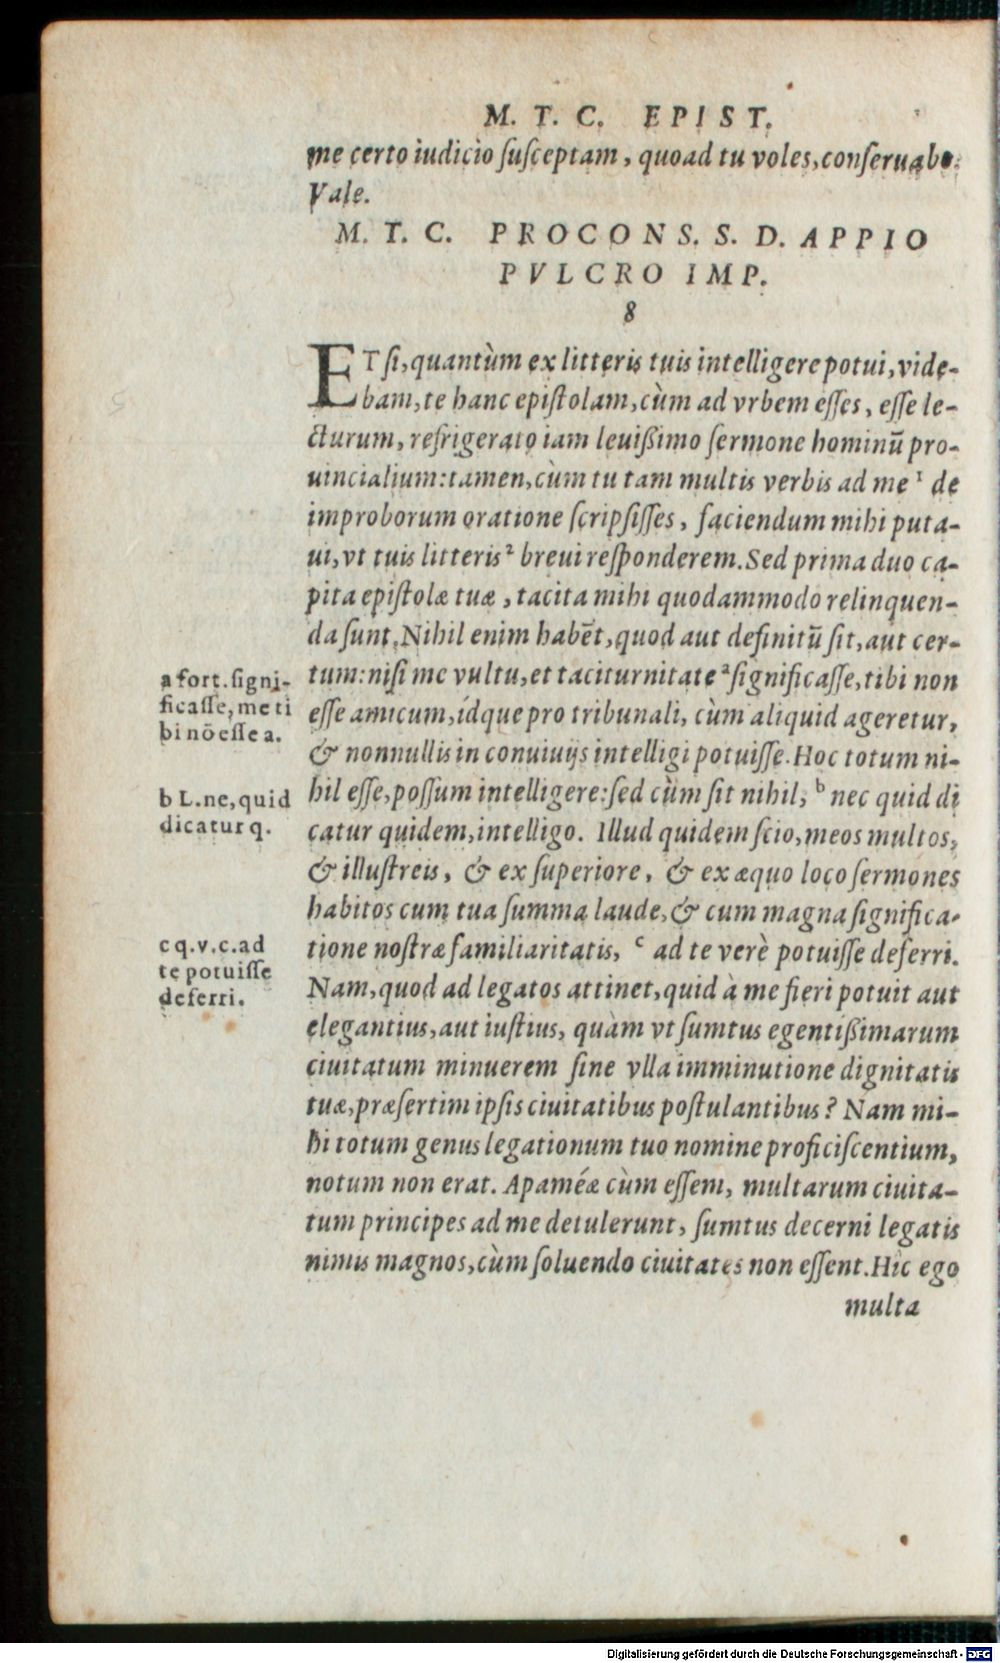 M. T. C. EPIST.
me certo iudicio ſuſceptam, quoad tu voles, conſeruabo.
Vale.
M. T. C. PROCONS. S. D. APPIO
PVLCRO IMP.
8
ETſi, quantùm ex litteris tuis intelligere potui, vide-
bam, te hanc epiſtolam, cùm ad vrbem eſſes, eſſe le-
cturum, refrigerato iam leuißimo ſermone hominū pro-
uincialium: tamen, cùm tu tam multis verbis ad me ¹ de
improborum oratione ſcripſiſſes, faciendum mihi puta-
ui, vt tuis litteris ² breui reſponderem. Sed prima duo ca-
pita epiſtolæ tuæ, tacita mihi quodammodo relinquen-
da ſunt. Nihil enim habēt, quod aut definitū ſit, aut cer-
tum: niſi me vultu, et taciturnitate ᵃ ſignificaſſe, tibi non
eſſe amicum, ídque pro tribunali, cùm aliquid ageretur,
& nonnullis in conuiuijs intelligi potuiſſe. Hoc totum ni-
hil eſſe, poſſum intelligere: ſed cùm ſit nihil, ᵇ nec quid di
catur quidem, intelligo. Illud quidem ſcio, meos multos,
& illuſtreis, & ex ſuperiore, & ex æquo loco ſermones
habitos cum tua ſumma laude, & cum magna ſignifica-
tione noſtræ familiaritatis, ᶜ ad te verè potuiſſe deferri.
Nam, quod ad legatos attinet, quid à me fieri potuit aut
elegantius, aut iuſtius, quàm vt ſumtus egentißimarum
ciuitatum minuerem ſine vlla imminutione dignitatis
tuæ, præſertim ipſis ciuitatibus poſtulantibus? Nam mi-
hi totum genus legationum tuo nomine proficiſcentium,
notum non erat. Apaméæ cùm eſſem, multarum ciuita-
tum principes ad me detulerunt, ſumtus decerni legatis
nimis magnos, cùm ſoluendo ciuitates non eſſent. Hîc ego
multa
a fort. ſigni-
ficaſſe, me ti
bi nō eſſe a.
b L. ne, quid
dicatur q.
c q. v. c. ad
te potuiſſe
deferri.
Digitalisierung gefördert durch die Deutsche Forschungsgemeinschaft - DFG